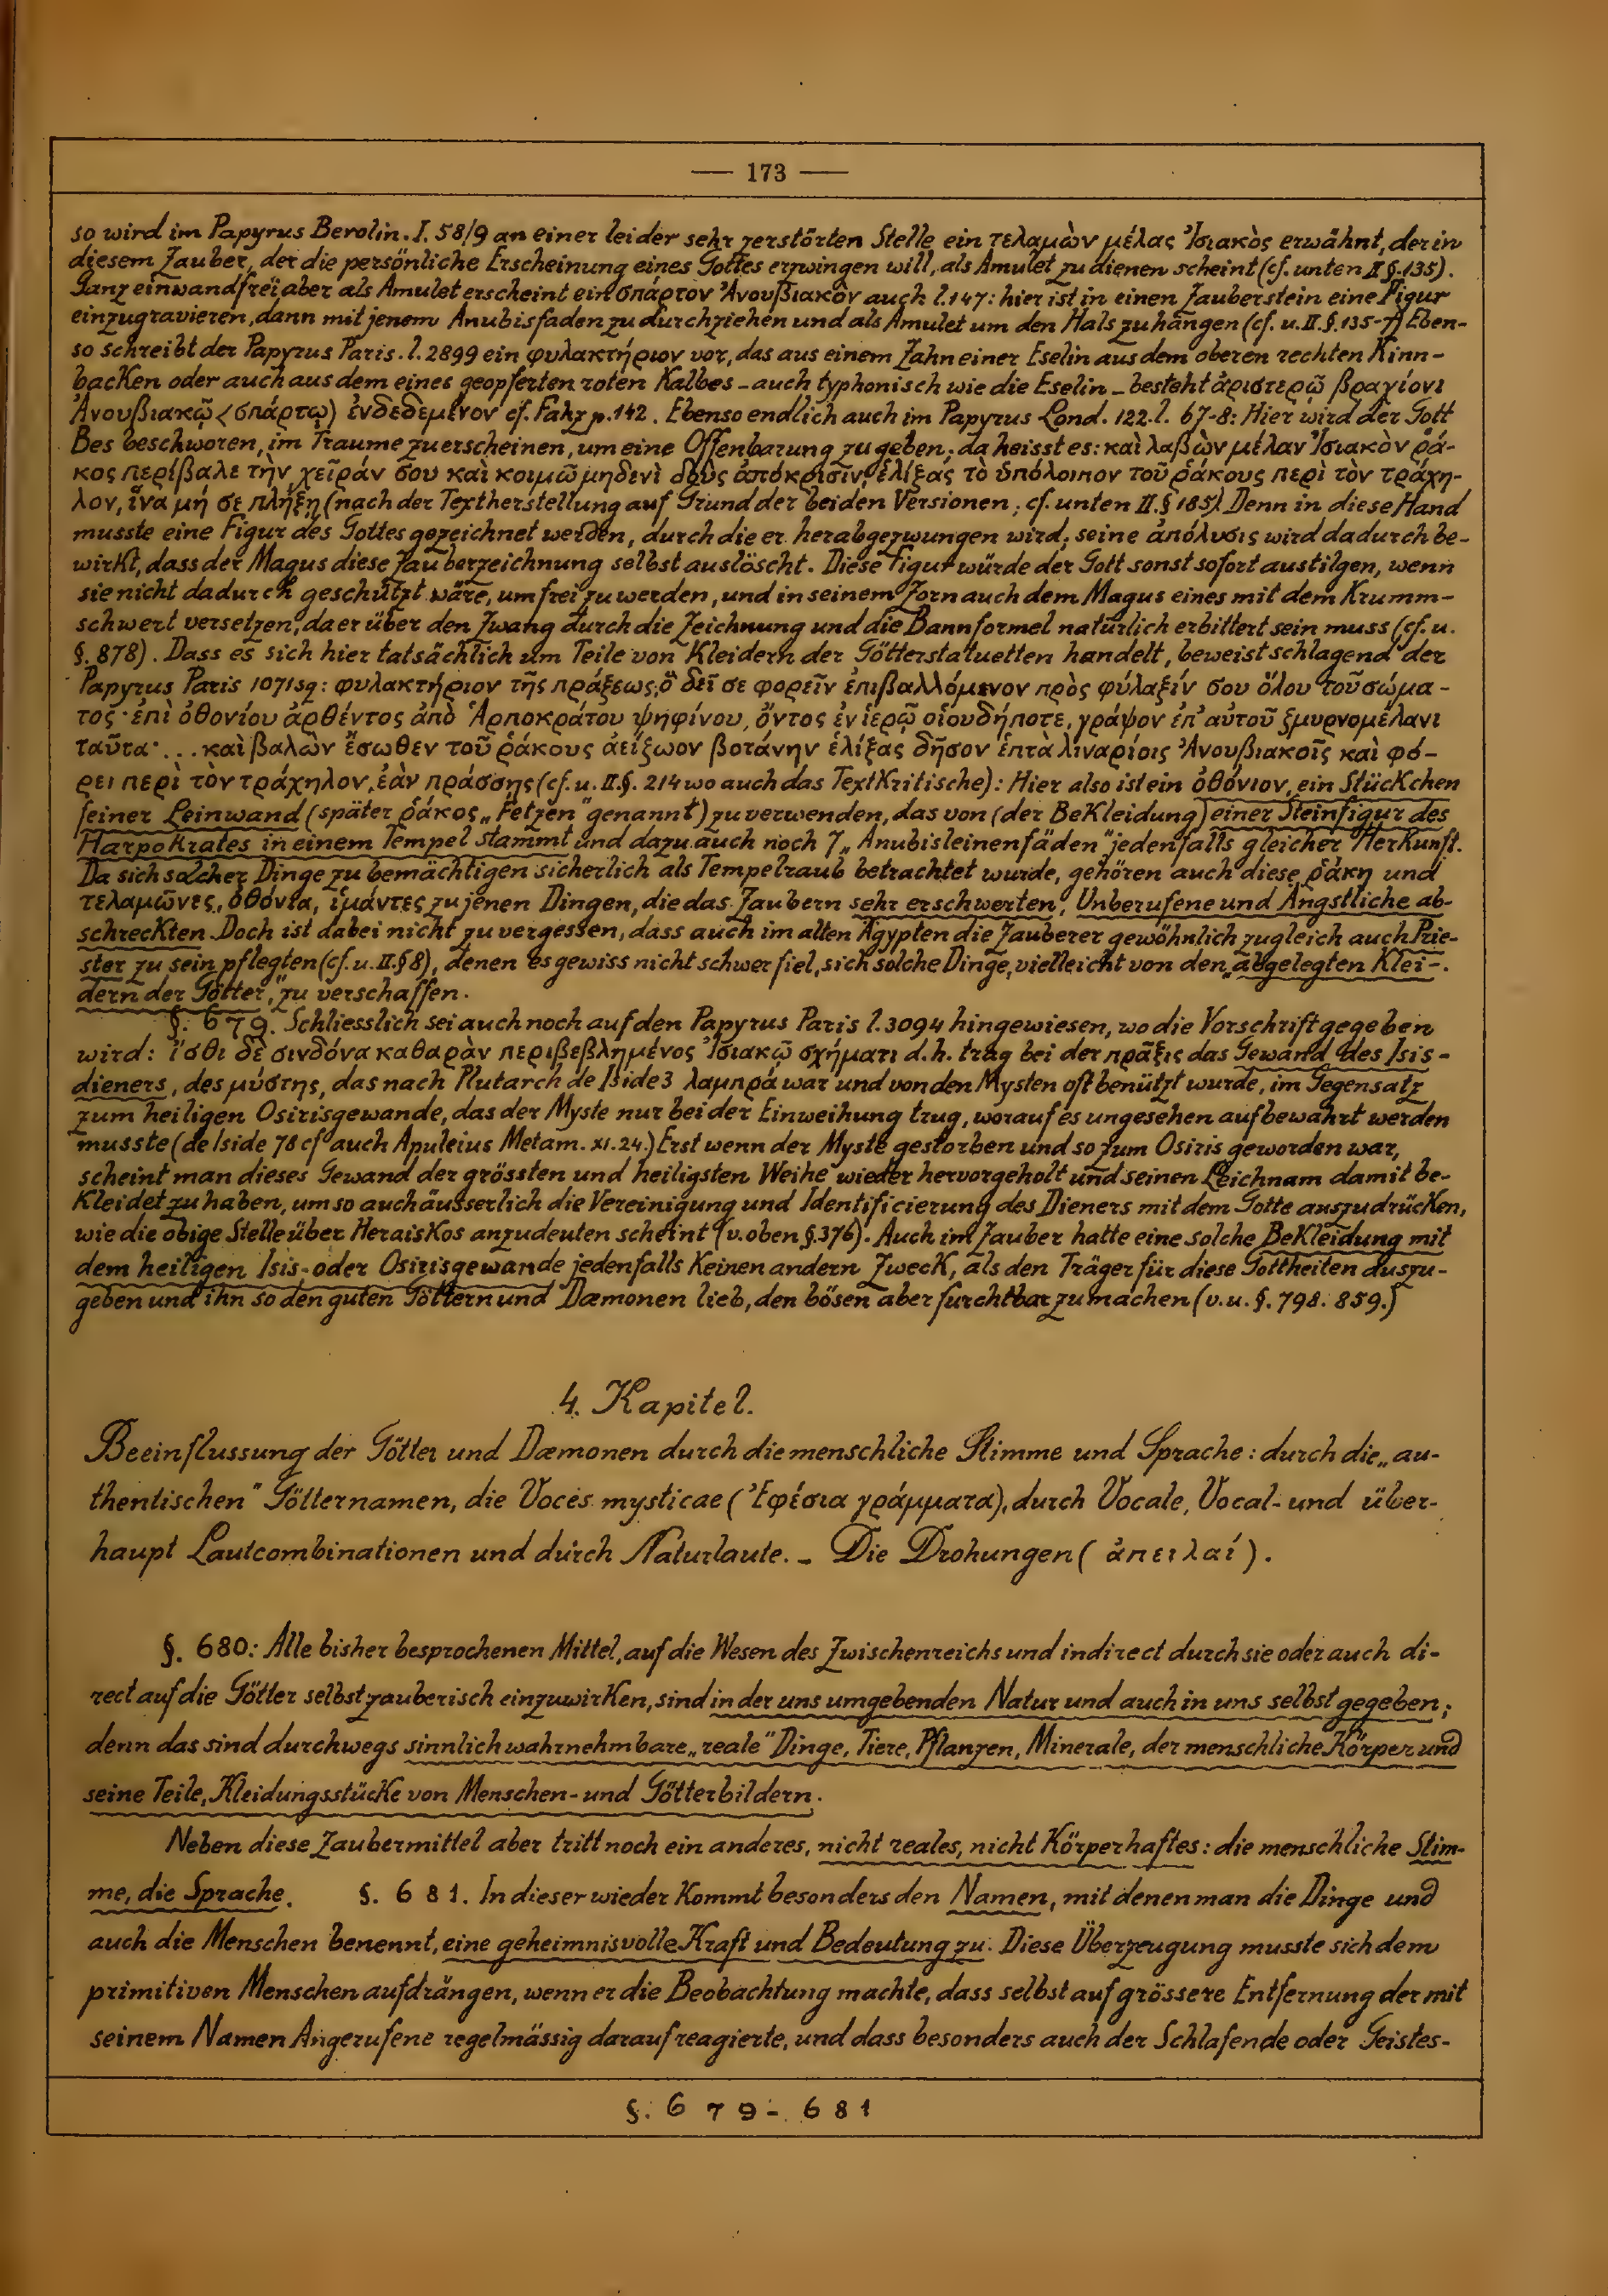 — 173 —
so wird im Papyrus Berolin. I. 58/9 an einer leider sehr zerstörten Stelle ein τελαμὼν μέλας Ἰσιακὸς erwähnt, der in
diesem Zauber, der die persönliche Erscheinung eines Gottes erzwingen will, als Amulet zu dienen scheint (cf. unten II §. 135).
Ganz einwandfrei aber als Amulet erscheint ein σπάρτον Ἀνουβιακὸν auch l. 147: hier ist in einen Zauberstein eine Figur
einzugravieren, dann mit jenem Anubisfaden zu durchziehen und als Amulet um den Hals zu hängen (cf. u. II. §. 135-7) Eben-
so schreibt der Papyrus Paris. l. 2899 ein φυλακτήριον vor, das aus einem Zahn einer Eselin aus dem oberen rechten Kinn-
backen oder auch aus dem eines geopferten roten Kalbes - auch typhonisch wie die Eselin - besteht ἀριστερῷ βραχίονι
Ἀνουβιακῷ <σπάρτῳ> ἐνδεδεμένον cf. Fahz p. 142. Ebenso endlich auch im Papyrus Lond. 122. l. 67-8: Hier wird der Gott
Bes beschworen, im Traume zu erscheinen, um eine Offenbarung zu geben; da heisst es: καὶ λαβὼν μέλαν Ἰσιακὸν ῥά-
κος περίβαλε τὴν χεῖράν σου καὶ κοιμῶ μηδενὶ δοὺς ἀπόκρισιν, ἑλίξας τὸ ὑπόλοιπον τοῦ ῥάκους περὶ τὸν τράχη-
λον, ἵνα μή σε πλήξῃ (nach der Textherstellung auf Grund der beiden Versionen; cf. unten II. § 185). Denn in diese Hand
musste eine Figur des Gottes gezeichnet werden, durch die er herabgezwungen wird; seine ἀπόλυσις wird dadurch be-
wirkt, dass der Magus diese Zauberzeichnung selbst auslöscht. Diese Figur würde der Gott sonst sofort austilgen, wenn
sie nicht dadurch geschützt wäre, um frei zu werden, und in seinem Zorn auch dem Magus eines mit dem Krumm-
schwert versetzen, da er über den Zwang durch die Zeichnung und die Bannformel natürlich erbittert sein muss (cf. u.
§. 878). Dass es sich hier tatsächlich um Teile von Kleidern der Götterstatuetten handelt, beweist schlagend der
Papyrus Paris 1071 sq: φυλακτήριον τῆς πράξεως, ὃ δεῖ σε φορεῖν ἐπιβαλλόμενον πρὸς φύλαξίν σου ὅλου τοῦ σώμα-
τος· ἐπὶ ὀθονίου ἀρθέντος ἀπὸ Ἁρποκράτου ψηφίνου, ὄντος ἐν ἱερῷ οἱουδήποτε, γράψον ἐπ' αὐτοῦ ζμυρνομέλανι
ταῦτα· ... καὶ βαλὼν ἔσωθεν τοῦ ῥάκους ἀείζωον βοτάνην ἑλίξας δῆσον ἑπτὰ λιναρίοις Ἀνουβιακοῖς καὶ φό-
ρει περὶ τὸν τράχηλον, ἐὰν πράσσῃς (cf. u. II. §. 214 wo auch das Textkritische): Hier also ist ein ὀθόνιον, ein Stückchen
feiner Leinwand (später ῥάκος „Fetzen" genannt) zu verwenden, das von (der Bekleidung) einer Steinfigur des
Harpokrates in einem Tempel stammt und dazu auch noch 7 „Anubisleinenfäden" jedenfalls gleicher Herkunft.
Da sich solcher Dinge zu bemächtigen sicherlich als Tempelraub betrachtet wurde, gehören auch diese ῥάκη und
τελαμῶνες, ὀθόνια, ἱμάντες zu jenen Dingen, die das Zaubern sehr erschwerten, Unberufene und Ängstliche ab-
schreckten. Doch ist dabei nicht zu vergessen, dass auch im alten Ägypten die Zauberer gewöhnlich zugleich auch Prie-
ster zu sein pflegten (cf. u. II. § 8), denen es gewiss nicht schwer fiel, sich solche Dinge, vielleicht von den „abgelegten Klei-
dern der Götter", zu verschaffen.
§. 679. Schliesslich sei auch noch auf den Papyrus Paris l. 3094 hingewiesen, wo die Vorschrift gegeben
wird: ἴσθι δὲ σινδόνα καθαρὰν περιβεβλημένος Ἰσιακῷ σχήματι d.h. trag bei der πρᾶξις das Gewand des Isis-
dieners, des μύστης, das nach Plutarch de Iside 3 λαμπρά war und von den Mysten oft benützt wurde, im Gegensatz
zum heiligen Osirisgewande, das der Myste nur bei der Einweihung trug, worauf es ungesehen aufbewahrt werden
musste (de Iside 78 cf auch Apuleius Metam. XI. 24.) Erst wenn der Myste gestorben und so zum Osiris geworden war,
scheint man dieses Gewand der grössten und heiligsten Weihe wieder hervorgeholt und seinen Leichnam damit be-
kleidet zu haben, um so auch äusserlich die Vereinigung und Identificierung des Dieners mit dem Gotte auszudrücken,
wie die obige Stelle über Heraiskos anzudeuten scheint (v. oben §. 376). Auch im Zauber hatte eine solche Bekleidung mit
dem heiligen Isis- oder Osirisgewande jedenfalls keinen andern Zweck, als den Träger für diese Gottheiten auszu-
geben und ihn so den guten Göttern und Dæmonen lieb, den bösen aber furchtbar zu machen (v. u. §. 798. 859.)
4. Kapitel.
Beeinflussung der Götter und Dæmonen durch die menschliche Stimme und Sprache: durch die „au-
thentischen" Götternamen, die Voces mysticae (Ἐφέσια γράμματα), durch Vocale, Vocal- und über-
haupt Lautcombinationen und durch Naturlaute. - Die Drohungen (ἀπειλαί).
§. 680: Alle bisher besprochenen Mittel, auf die Wesen des Zwischenreichs und indirect durch sie oder auch di-
rect auf die Götter selbst zauberisch einzuwirken, sind in der uns umgebenden Natur und auch in uns selbst gegeben;
denn das sind durchwegs sinnlich wahrnehmbare, „reale" Dinge, Tiere, Pflanzen, Minerale, der menschliche Körper und
seine Teile, Kleidungsstücke von Menschen- und Götterbildern.
Neben diese Zaubermittel aber tritt noch ein anderes, nicht reales, nicht Körperhaftes: die menschliche Stim-
me, die Sprache. §. 681. In dieser wieder kommt besonders den Namen, mit denen man die Dinge und
auch die Menschen benennt, eine geheimnisvolle Kraft und Bedeutung zu. Diese Überzeugung musste sich dem
primitiven Menschen aufdrängen, wenn er die Beobachtung machte, dass selbst auf grössere Entfernung der mit
seinem Namen Angerufene regelmässig darauf reagierte, und dass besonders auch der Schlafende oder Geistes-
§. 679-681